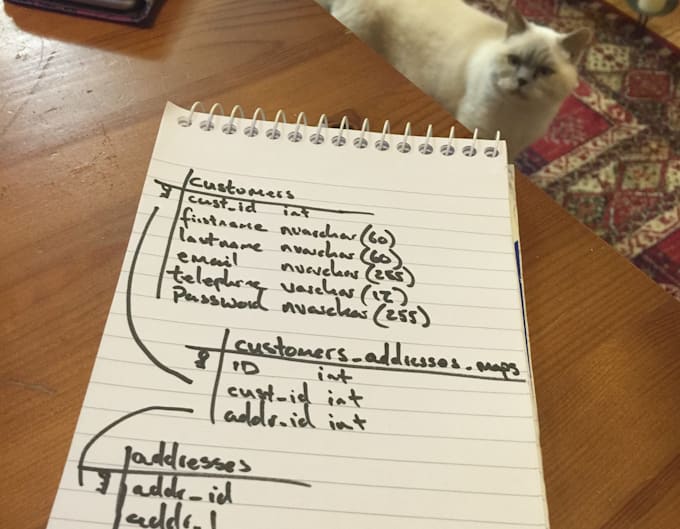 customers
cust_id int
firstname nvarchar(60)
lastname nvarchar(60)
email nvarchar(255)
telephone varchar(12)
Password nvarchar(255)
customers_addresses_maps
ID int
cust_id int
addr_id int
addresses
addr_id
addr_1